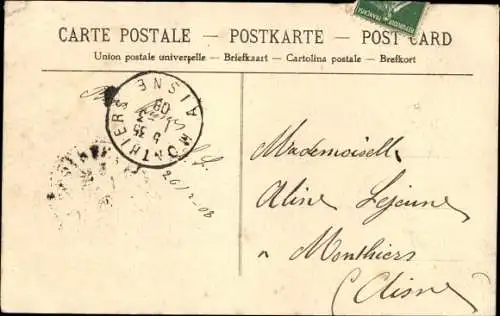 CARTE POSTALE – POSTKARTE – POST CARD
Union postale universelle – Briefkaart – Cartolina postale – Brefkort
MONTHIERS AISNE
26/2-08
Mademoiselle
Aline Lejeune
à Monthiers
(Aisne)